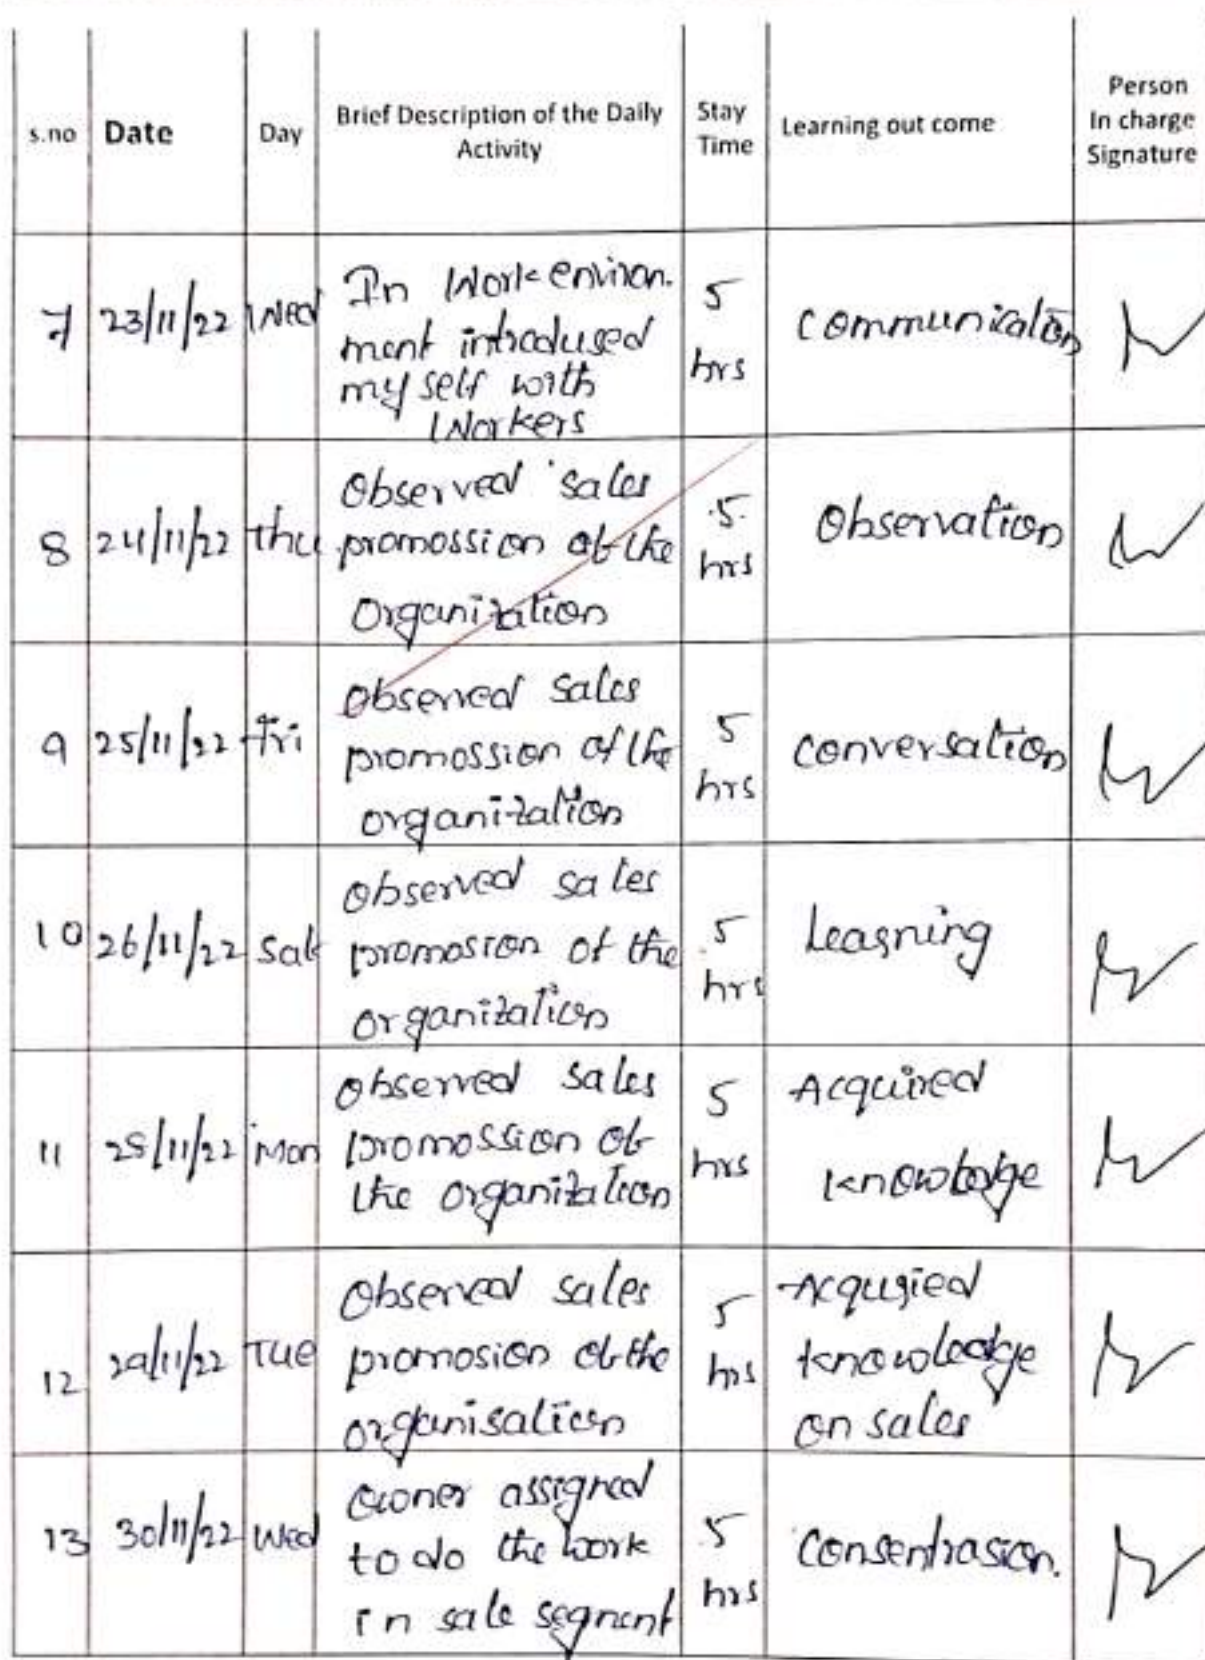 s.no Date Day Brief Description of the Daily Activity Stay Time Learning out come Person In charge Signature
7 23/11/22 Wed In Work environ.
ment introdused
my self with
Workers
5
hrs
Communication
8 24/11/22 thu Observed sales
promossion of the
Organization
5
hrs
Observation
9 25/11/22 fri Observed sales
promossion of the
organization
5
hrs
conversation
10 26/11/22 Sat Observed sales
promosion of the
organization
5
hrs
Learning
11 28/11/22 Mon Observed sales
promossion of
the organization
5
hrs
Acquired
knowledge
12 29/11/22 TUE Observed sales
promosion of the
organisation
5
hrs
Acqugied
knowledge
on sales
13 30/11/22 Wed Owner assigned
to do the work
in sale segment
5
hrs
Consentrasion.